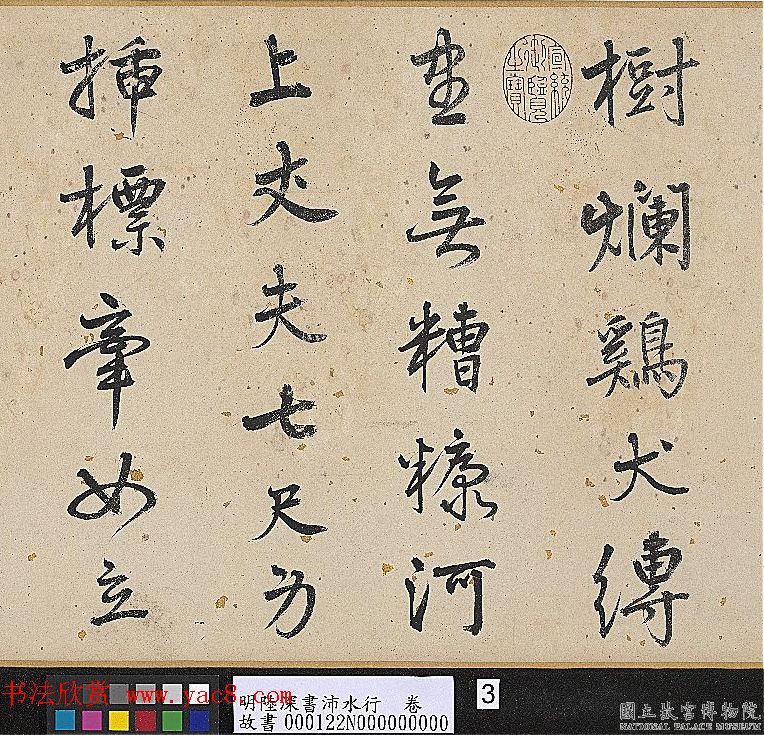 樹爛鷄犬縛
坐無糟糠河
上丈夫七尺身
插標牽女立
宣統御覽之寶
书法欣赏 www.yac8.com
明陸深書沛水行 卷
故書 000122N000000000
3
國立故宮博物院
NATIONAL PALACE MUSEUM